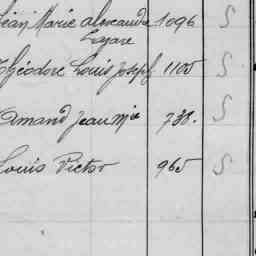 Jean Marie Alexandre 1096 S
Lazare
Théodore Louis Joseph 1105 S
Amand Jean Mie 738. S
Louis Victor 965 S